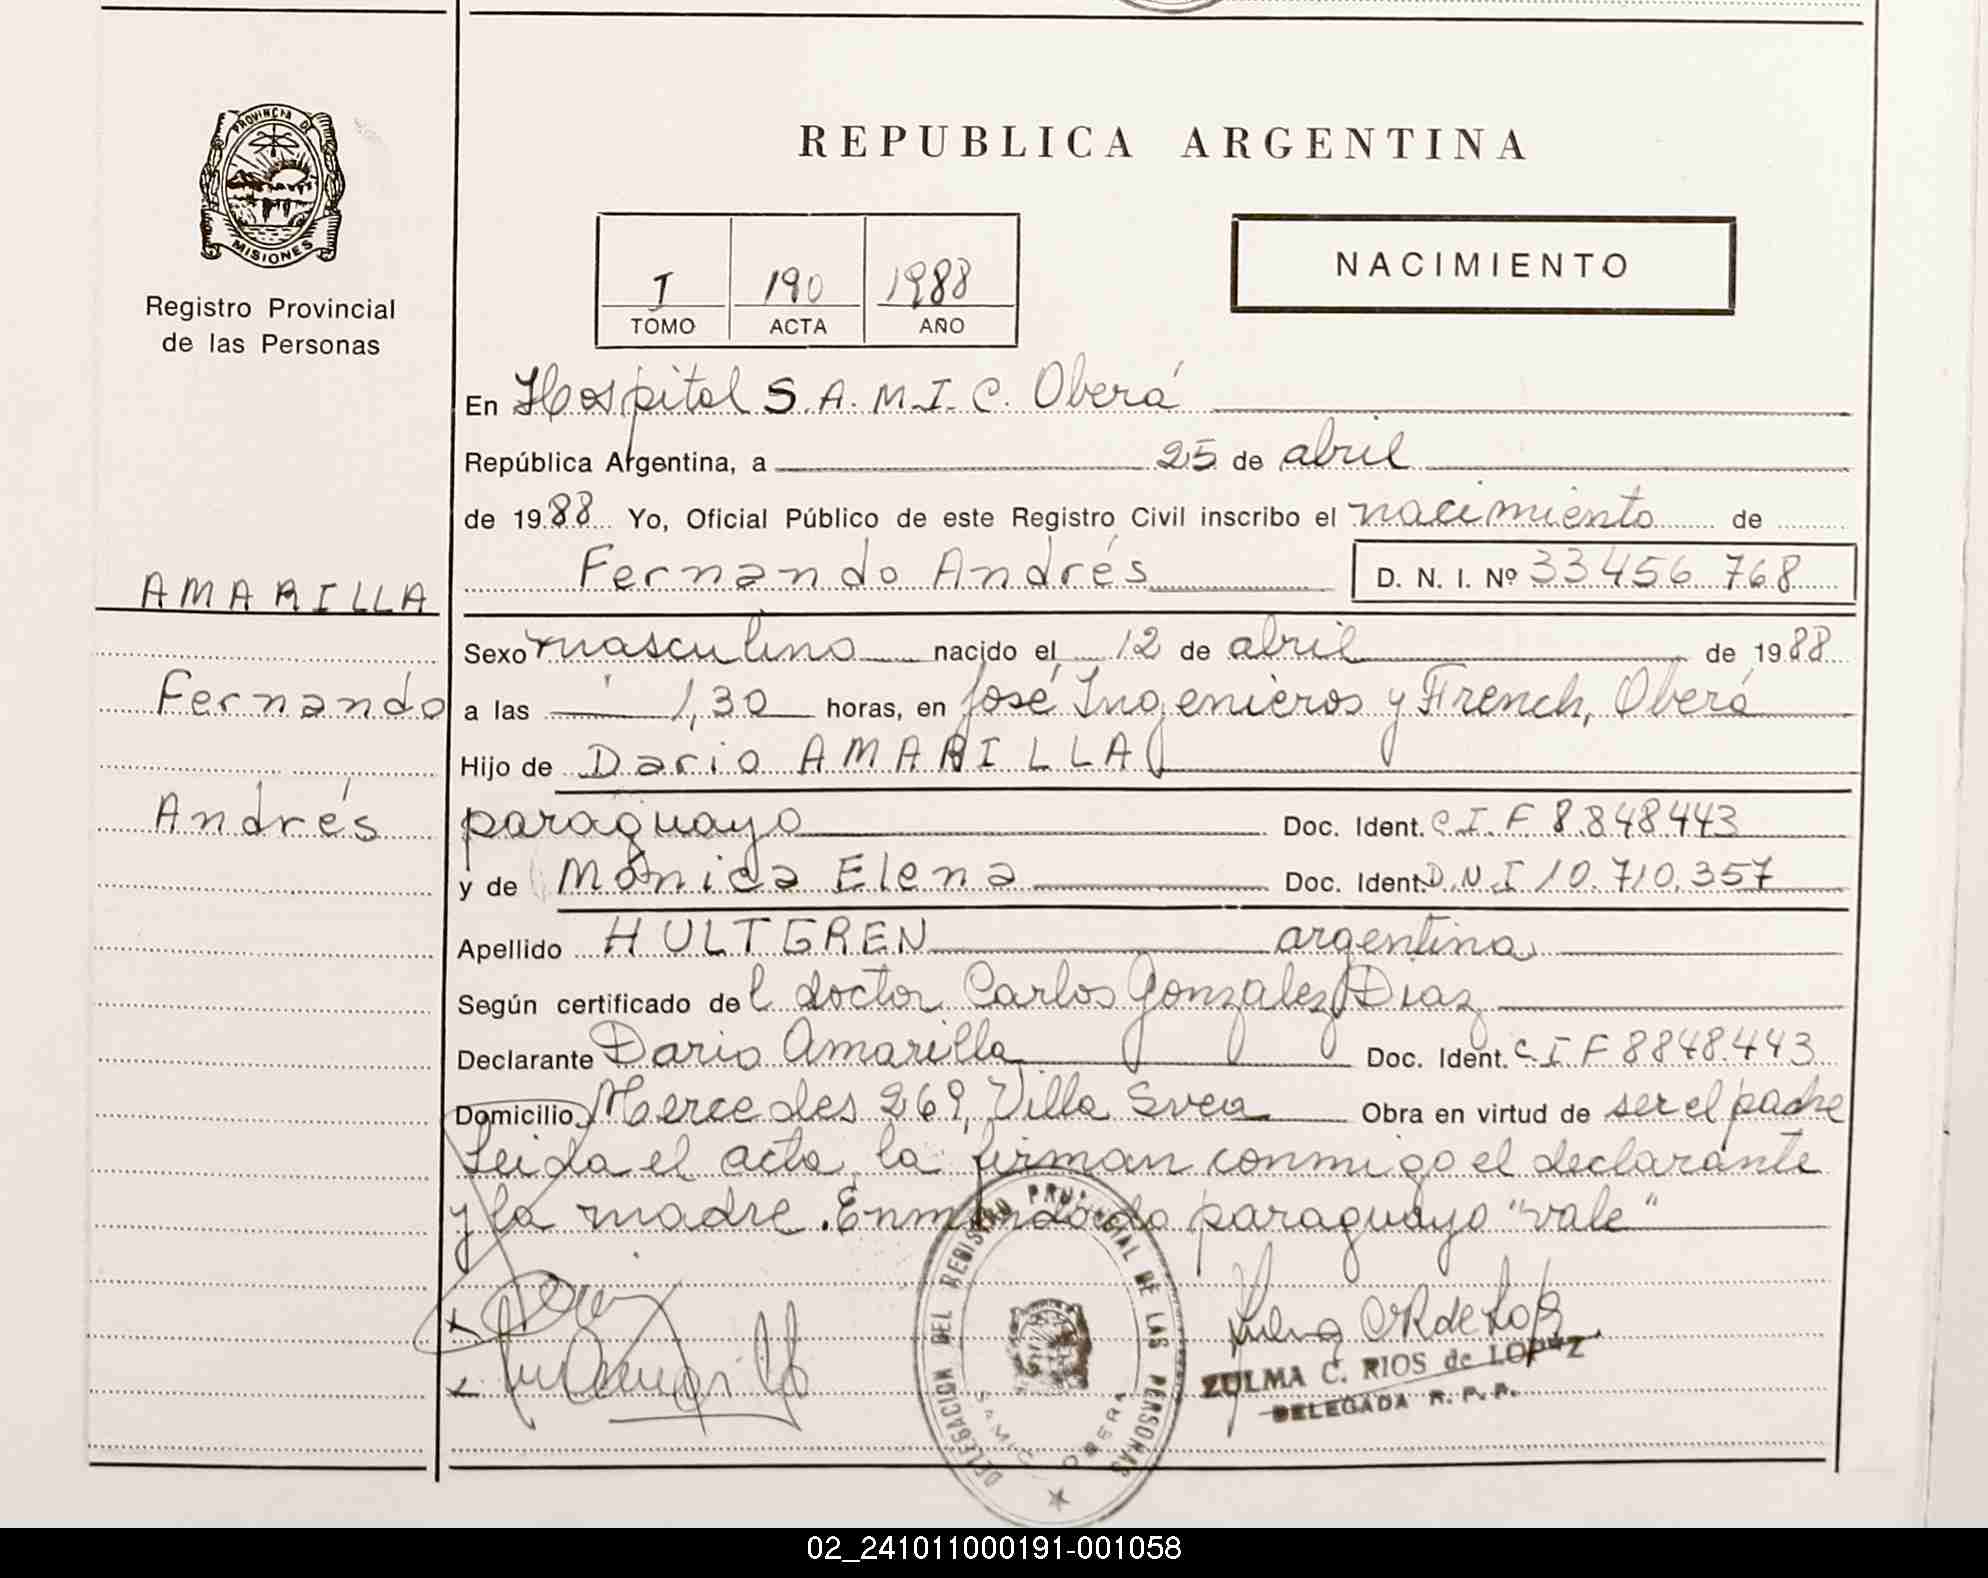 PROVINCIA D
MISIONES
Registro Provincial
de las Personas
REPUBLICA ARGENTINA
I 190 1988
TOMO ACTA AÑO
NACIMIENTO
En Hospital S.A.M.I.C. Oberá
República Argentina, a 25 de abril
de 1988 Yo, Oficial Público de este Registro Civil inscribo el nacimiento de
Fernando Andrés D. N. I. Nº 33456 768
AMARILLA
Fernando
Andrés
Sexo masculino nacido el 12 de abril de 1988
a las 1,30 horas, en José Ingenieros y French, Oberá
Hijo de Dario AMARILLA
paraguayo Doc. Ident. C.I.F 8.848443
y de Mónica Elena Doc. Ident. D.N.I 10.710.357
Apellido HULTGREN argentina
Según certificado del doctor Carlos Gonzalez Diaz
Declarante Dario Amarilla Doc. Ident. C.I.F 8848.443
Domicilio Mercedes 269, Villa Svea Obra en virtud de ser el padre
Leida el acta, la firman conmigo el declarante
y la madre. Enmendado paraguayo "vale"
DELEGACION DEL REGISTRO PROVINCIAL DE LAS PERSONAS
SAMIC OBERA
ZULMA C. RIOS de LOPEZ
DELEGADA R. P. P.
02_241011000191-001058